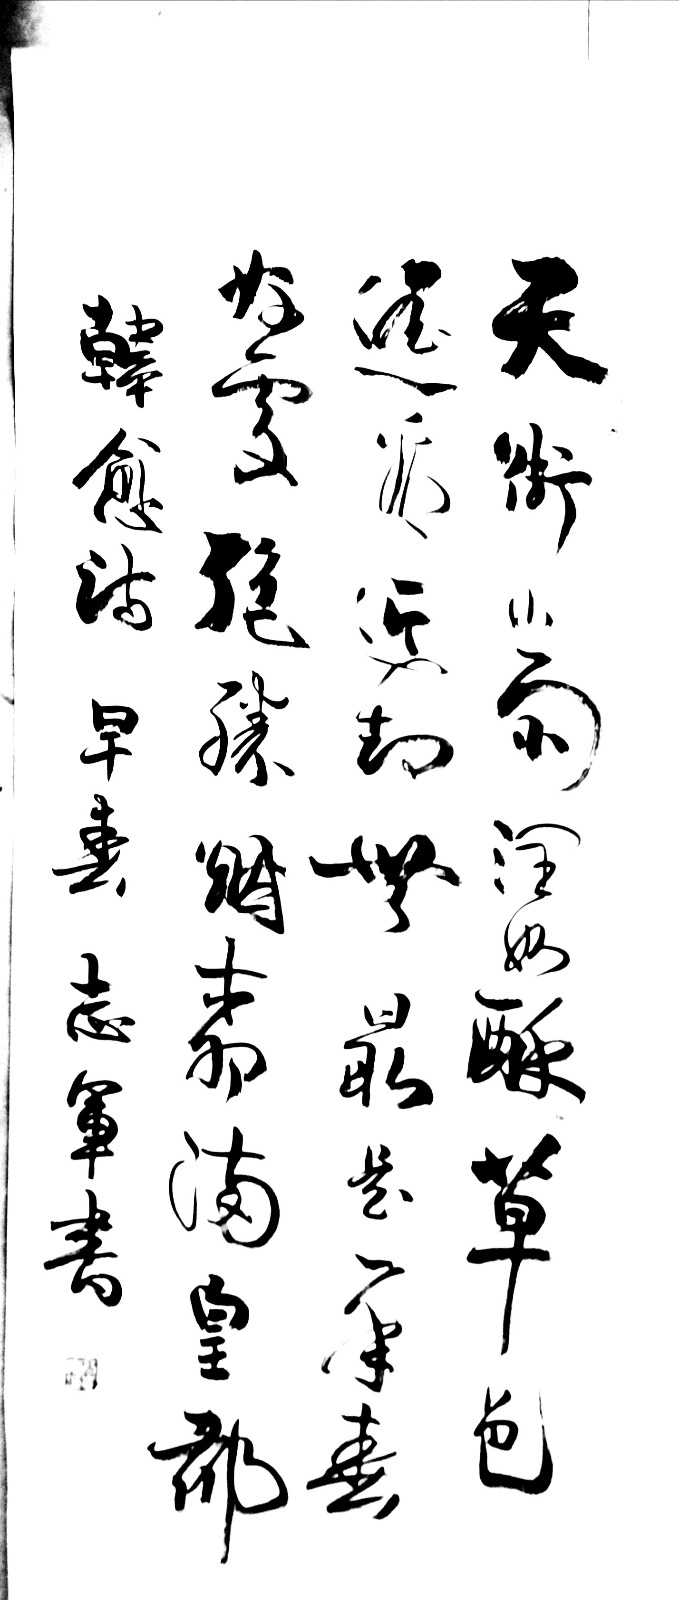 天街小雨潤如酥草色
遙看近却無最是一年春
好處絕勝烟柳滿皇都
韓愈詩 早春 志軍書